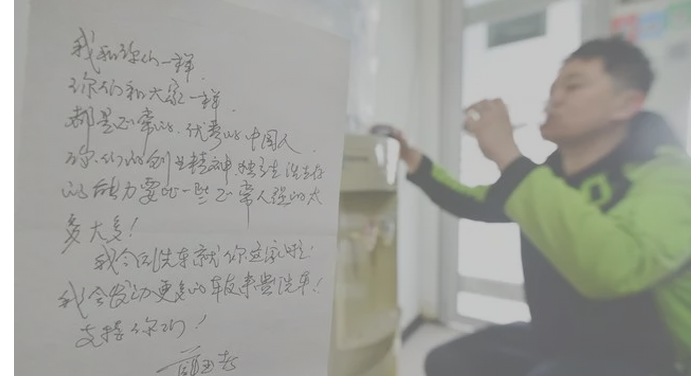 我和你们一样
你们和大家一样
都是正常的、优秀的中国人
你们的创业精神、独立生活生存
的能力要比一些正常人强的太
多太多！
我今后洗车就你这家啦！
我会发动更多的车友来贵洗车！
支持你们！